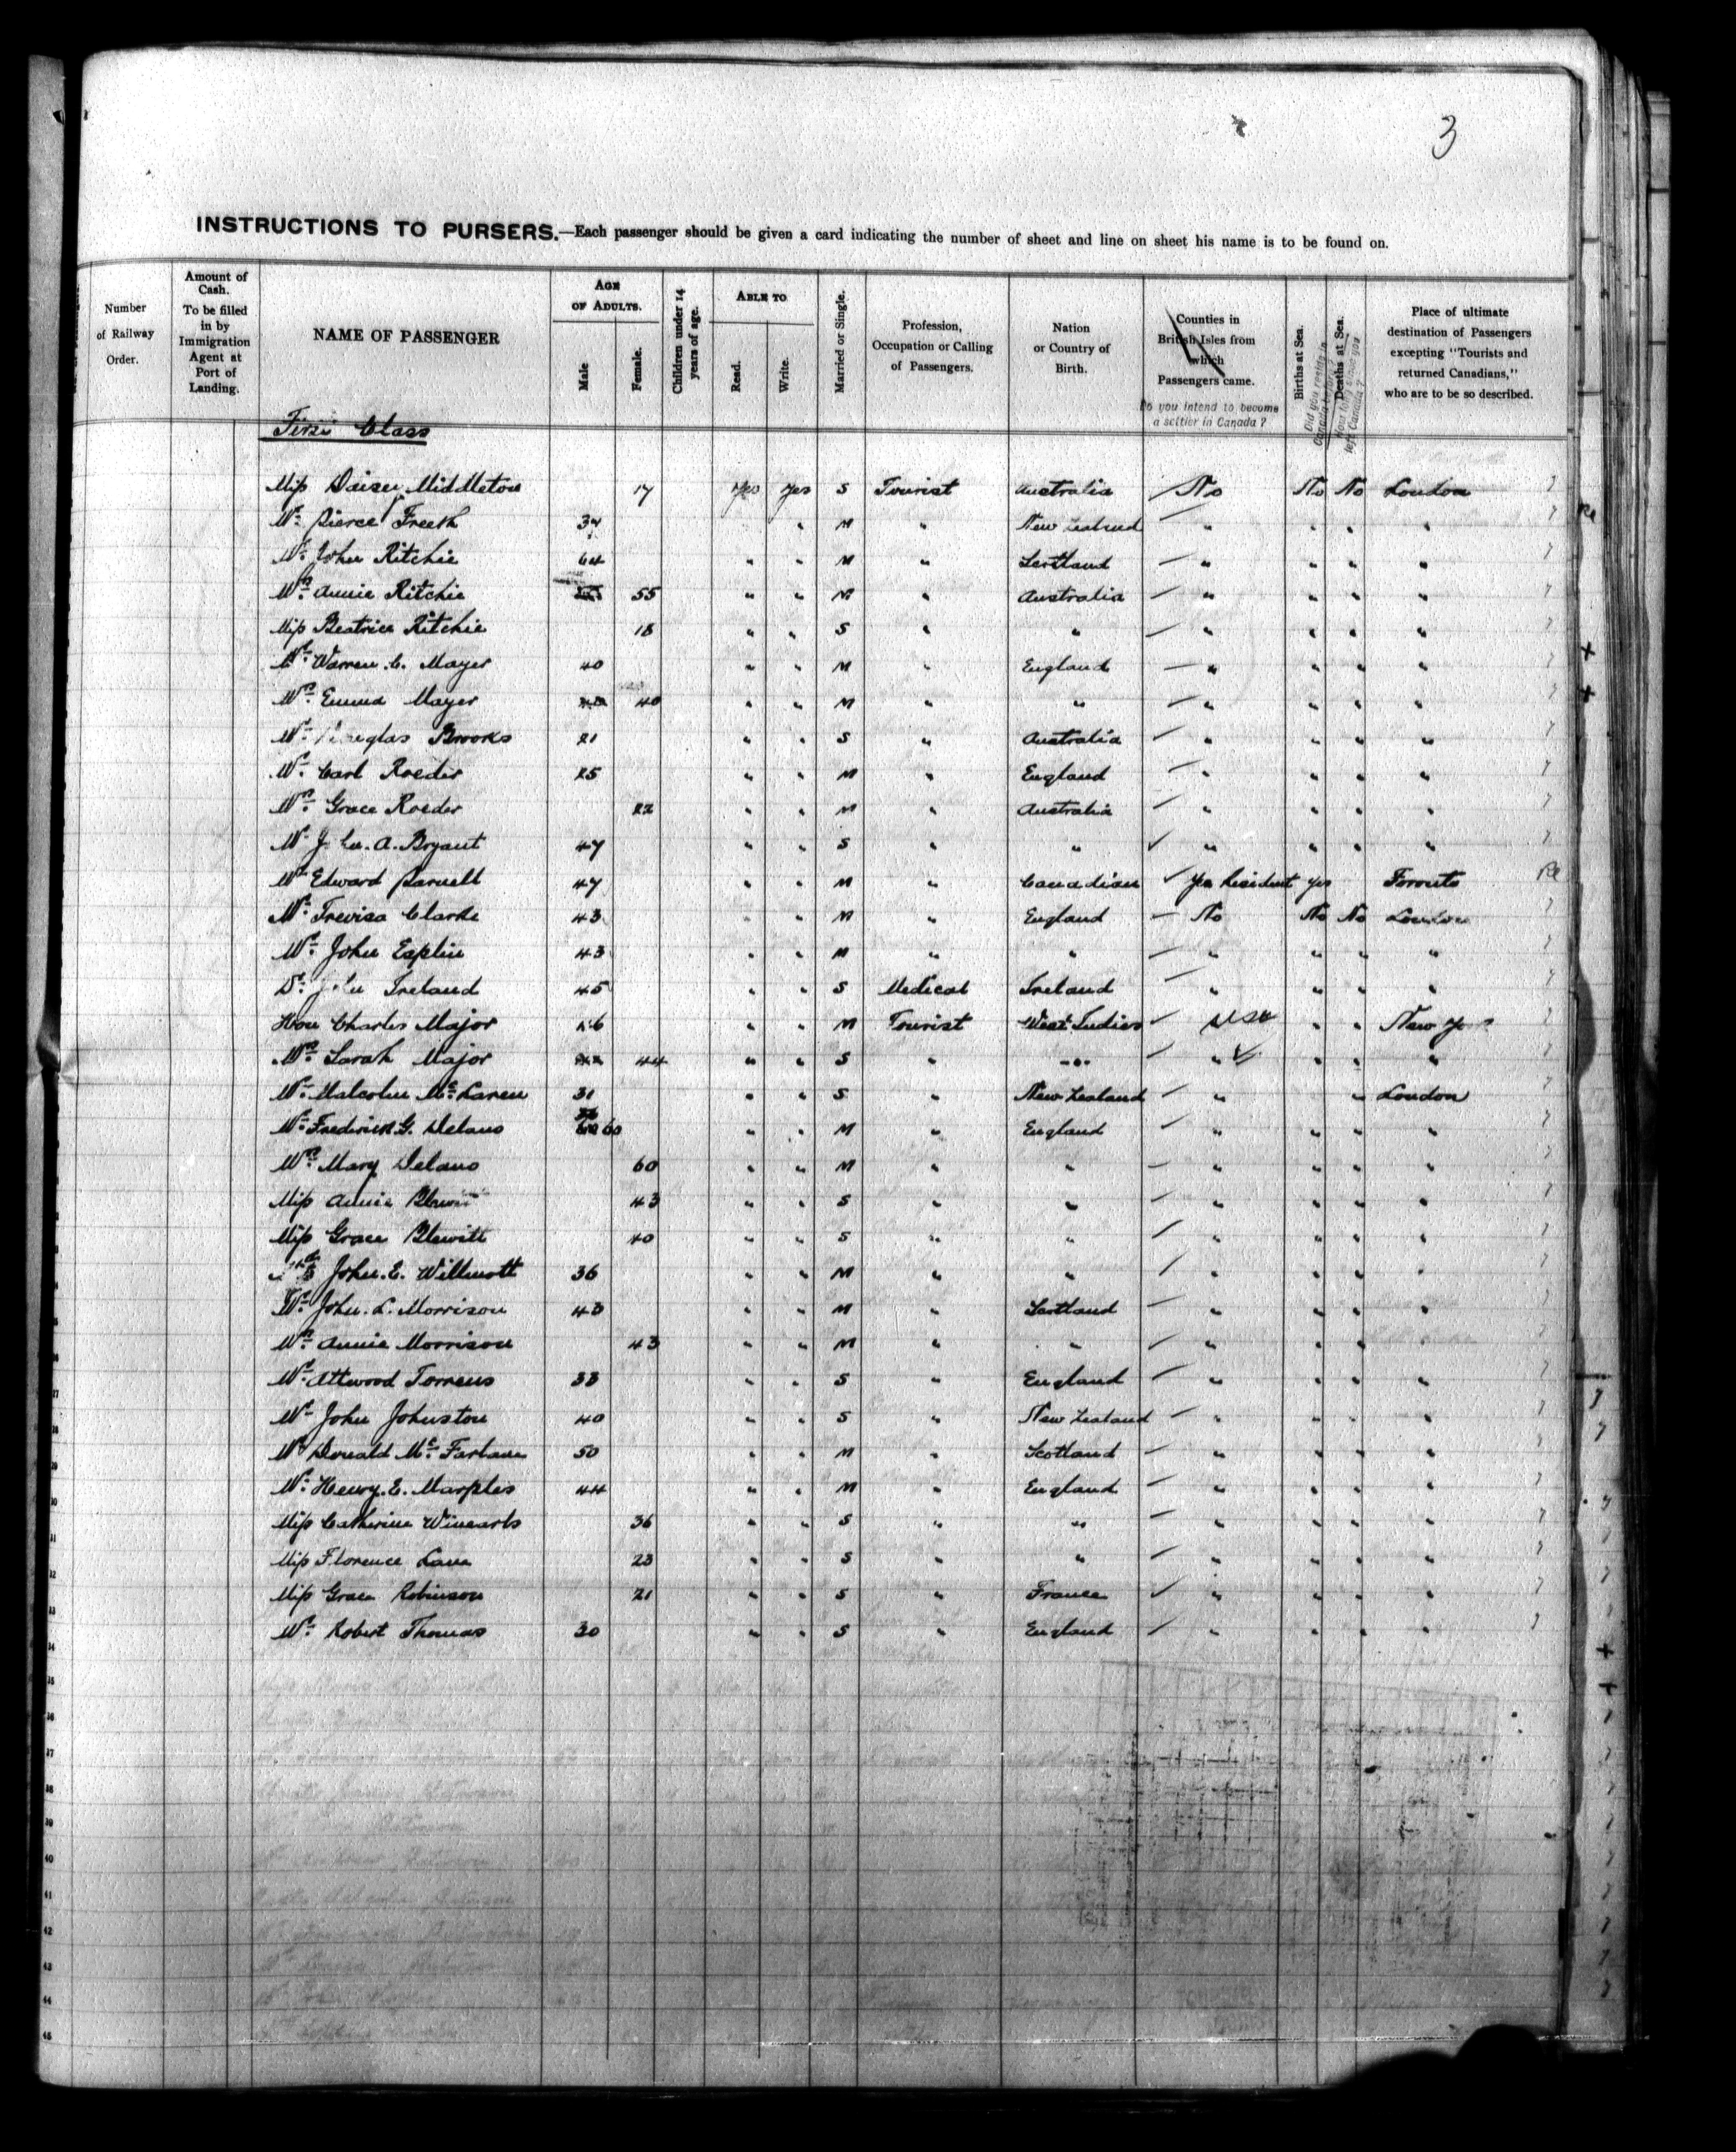 3
INSTRUCTIONS TO PURSERS.—Each passenger should be given a card indicating the number of sheet and line on sheet his name is to be found on.
Number of Railway Order.
Amount of Cash. To be filled in by Immigration Agent at Port of Landing.
NAME OF PASSENGER
AGE OF ADULTS.
Male
Female.
Children under 14 years of age.
ABLE TO
Read.
Write.
Married or Single.
Profession, Occupation or Calling of Passengers.
Nation or Country of Birth.
Counties in British Isles from which Passengers came.
Do you intend to become a settler in Canada?
Births at Sea.
Deaths at Sea.
Place of ultimate destination of Passengers excepting "Tourists and returned Canadians," who are to be so described.
First Class
Miss Daisey Middleton 17 Yes Yes S Tourist Australia No No No London
Mr. Pierce Freeth 34 " M " New Zealand " " " "
Mr. John Ritchie 64 " " M " Scotland " " " "
Mrs. Annie Ritchie 55 " " M " Australia " " " "
Miss Beatrice Ritchie 18 " " S " " " " " "
Mr. Warren C. Mayer 40 " " M " England " " " "
Mrs. Emma Mayer 40 " " M " " " " " "
Mr. Douglas Brooks 21 " " S " Australia " " " "
Mr. Carl Roeder 25 " " M " England " " " "
Mrs. Grace Roeder 22 " " M " Australia " " " "
Mr. A. Bryant 47 " " S " " " " " "
Mr. Edward Parnell 47 " " M " Canadian Yes Resident Yes Toronto
Mr. Trevisa Clarke 43 " " M " England No No No London
Mr. John Esplin 43 " " M " " " " " "
Dr. John Ireland 45 " " S Medical Ireland " " " "
Hon Charles Major " " M Tourist West Indies USA " " New York
Mrs. Sarah Major 44 " " S " " " " " "
Mr. Malcolm McLaren 31 " " S " New Zealand " " London
Mr. Frederick G. Delano 60 " " M " England " " " "
Mrs. Mary Delano 60 " " M " " " " " "
Miss Annie Blewitt 43 " " S " " " " " "
Miss Grace Blewitt 40 " " S " " " " " "
John. E. Willmott 36 " " M " " " " " "
Mr. John. L. Morrison 43 " " M " Scotland " " " "
Mrs. Annie Morrison 43 " " M " " " " " "
Mr. Attwood Torrens 33 " " S " England " " " "
Mr. John Johnston 40 " " S " New Zealand " " " "
Mr. Donald McFarlane 50 " " M " Scotland " " " "
Mr. Henry. E. Marples 44 " " M " England " " " "
Miss Catherine Winearls 36 " " S " " " " " "
Miss Florence Lane 23 " " S " " " " " "
Miss Grace Robinson 21 " " S " France " " " "
Mr. Robert Thomas 30 " " S " England " " " "